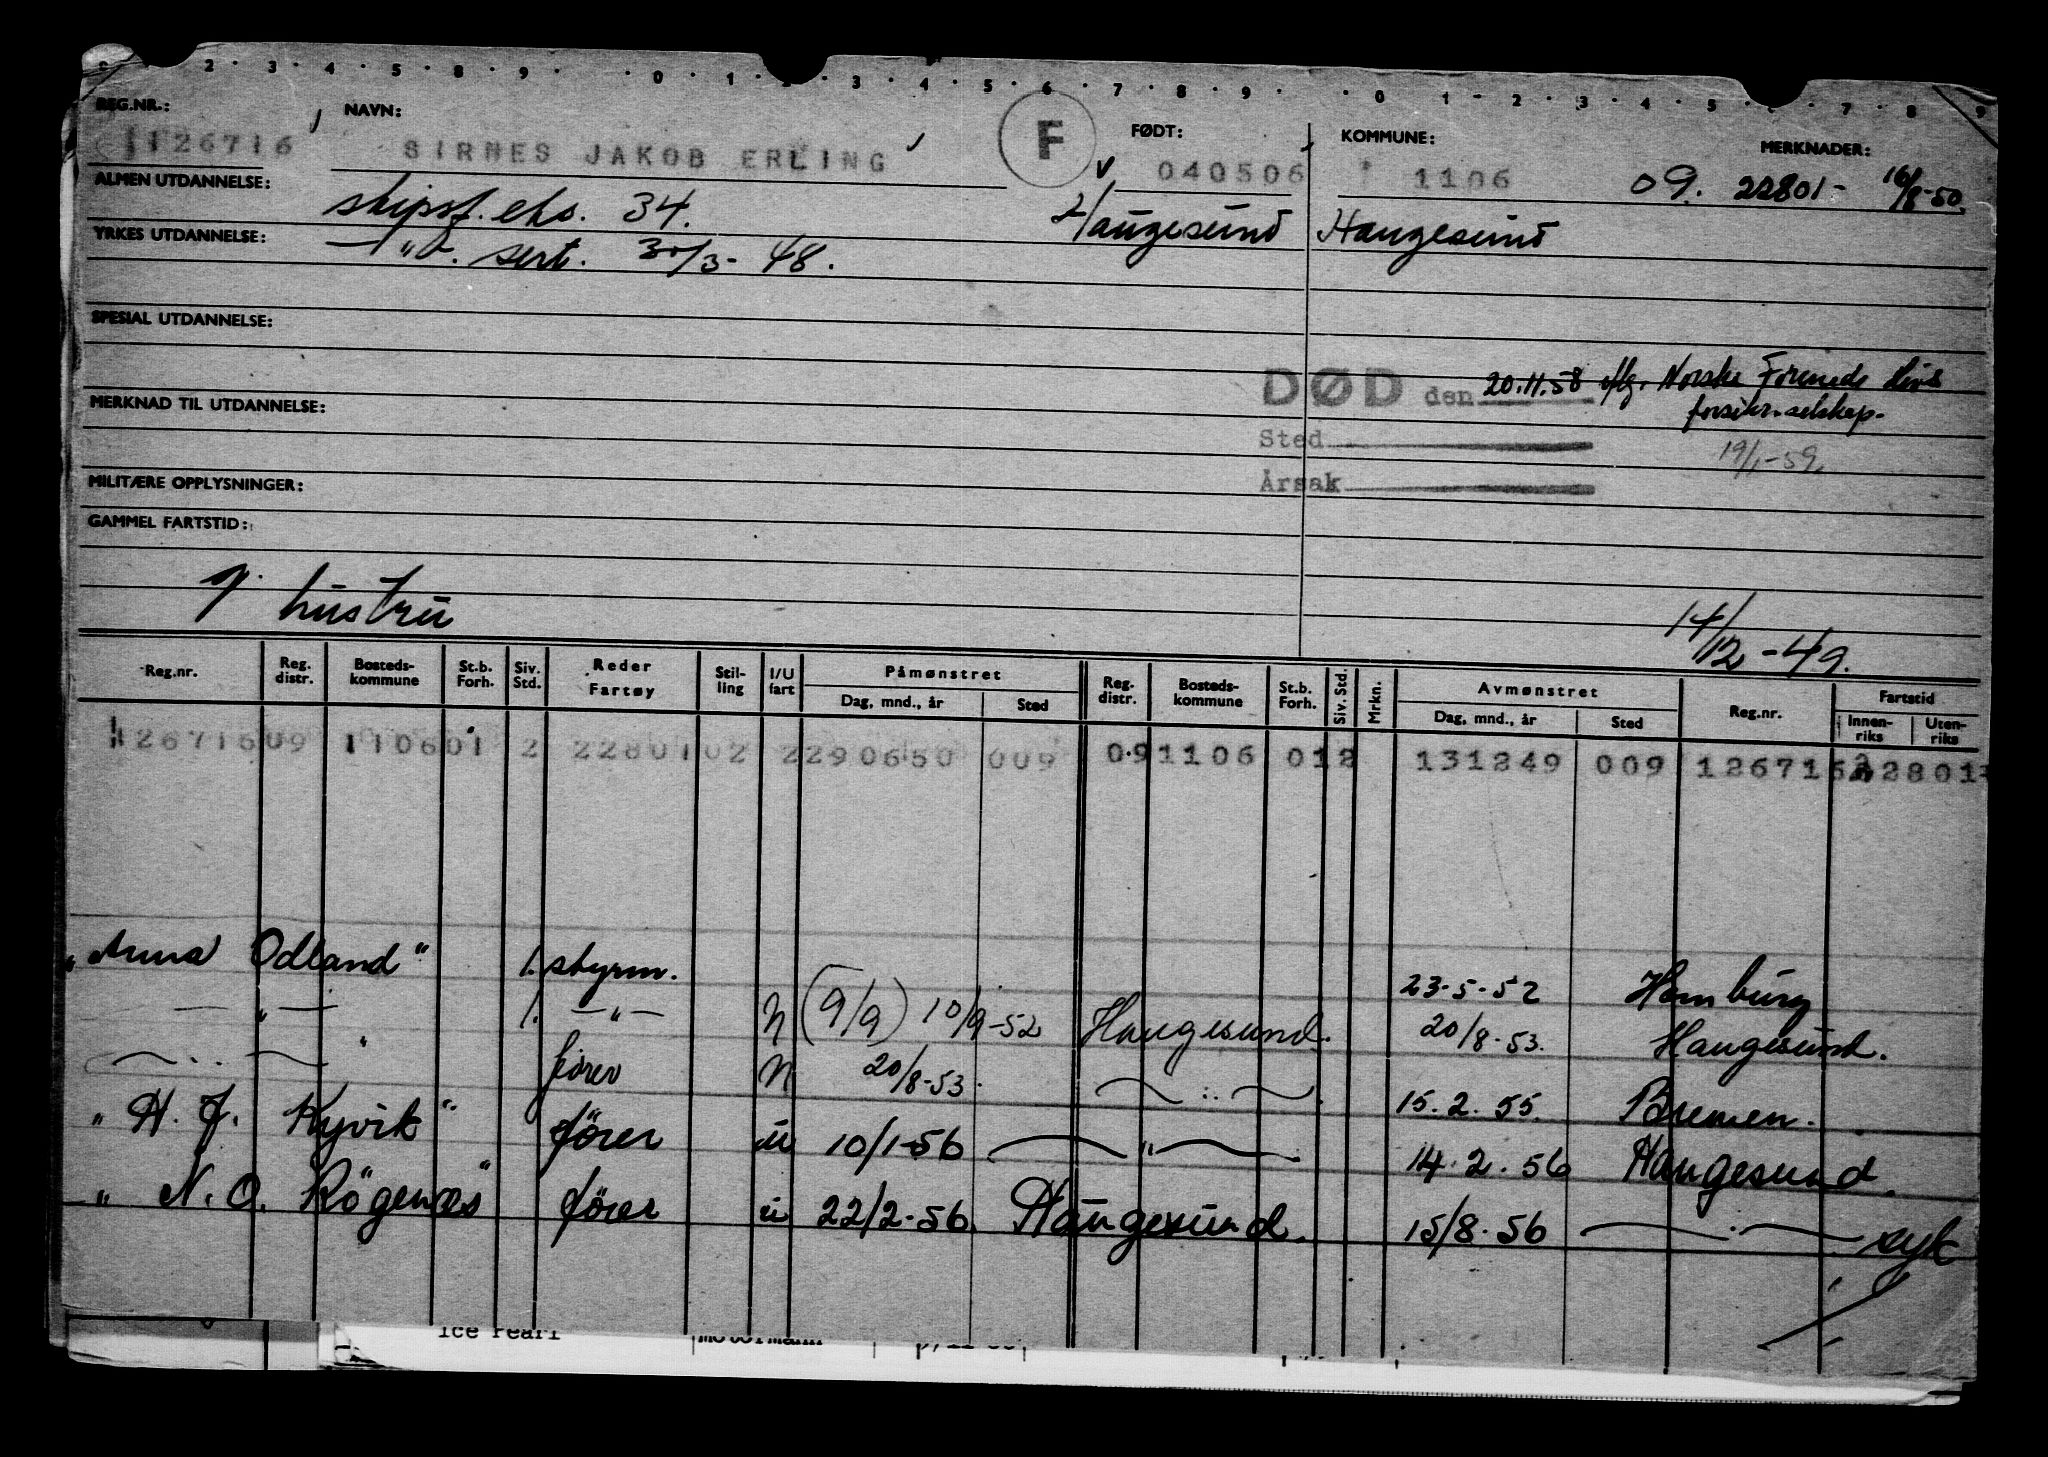 2 · 3 · 4 · 5 · 8 · 9 · · 0 · 1 · 3 · 4 · 5 · 6 · 7 · 8 · 9 · · 0 1 · 2 · 3 · 4 · 5 · 7 · 8 9
REG.NR.: NAVN: F FØDT: KOMMUNE: MERKNADER:
126716 SIRNES JAKOB ERLING 040506 1106 09. 22801- 16/8-50
ALMEN UTDANNELSE: skipsf. eks. 34. Haugesund Haugesund
YRKES UTDANNELSE: —"— sert. 30/3- 48.
SPESIAL UTDANNELSE:
DØD den 20.11.58 iflg. Norske Forenede Livs
MERKNAD TIL UTDANNELSE: forsikr.selskap.
Sted 19/1-59
MILITÆRE OPPLYSNINGER: Årsak
GAMMEL FARTSTID:
g. hustru 14/12-49.
Reg.nr. Reg. distr. Bosteds- kommune St.b. Forh. Siv. Std. Reder Fartøy Stil- ling I/U fart Påmønstret Dag, mnd., år Sted Reg. distr. Bosteds- kommune St.b. Forh. Siv. Std. Mrkn. Avmønstret Dag, mnd., år Sted Reg.nr. Fartstid Innen- riks Uten- riks
12671609 110601 2 2280102 2290650 009 091106 012 131249 009 126716 22801
"Anna Odland" 1. styrm. 23-5-52 Hamburg
—"— 1. —"— N (9/9) 10/9-52 Haugesund. 20/8-53. Haugesund.
—"— fører N 20/8-53. —"— 15.2.55. Bremen.
"H. J. Kyvik" fører u 10/1-56 —"— 14.2.56 Haugesund.
"N. O. Rögenæs" fører u 22/2-56. Haugesund. 15/8-56 —"— syk
Ice Pearl